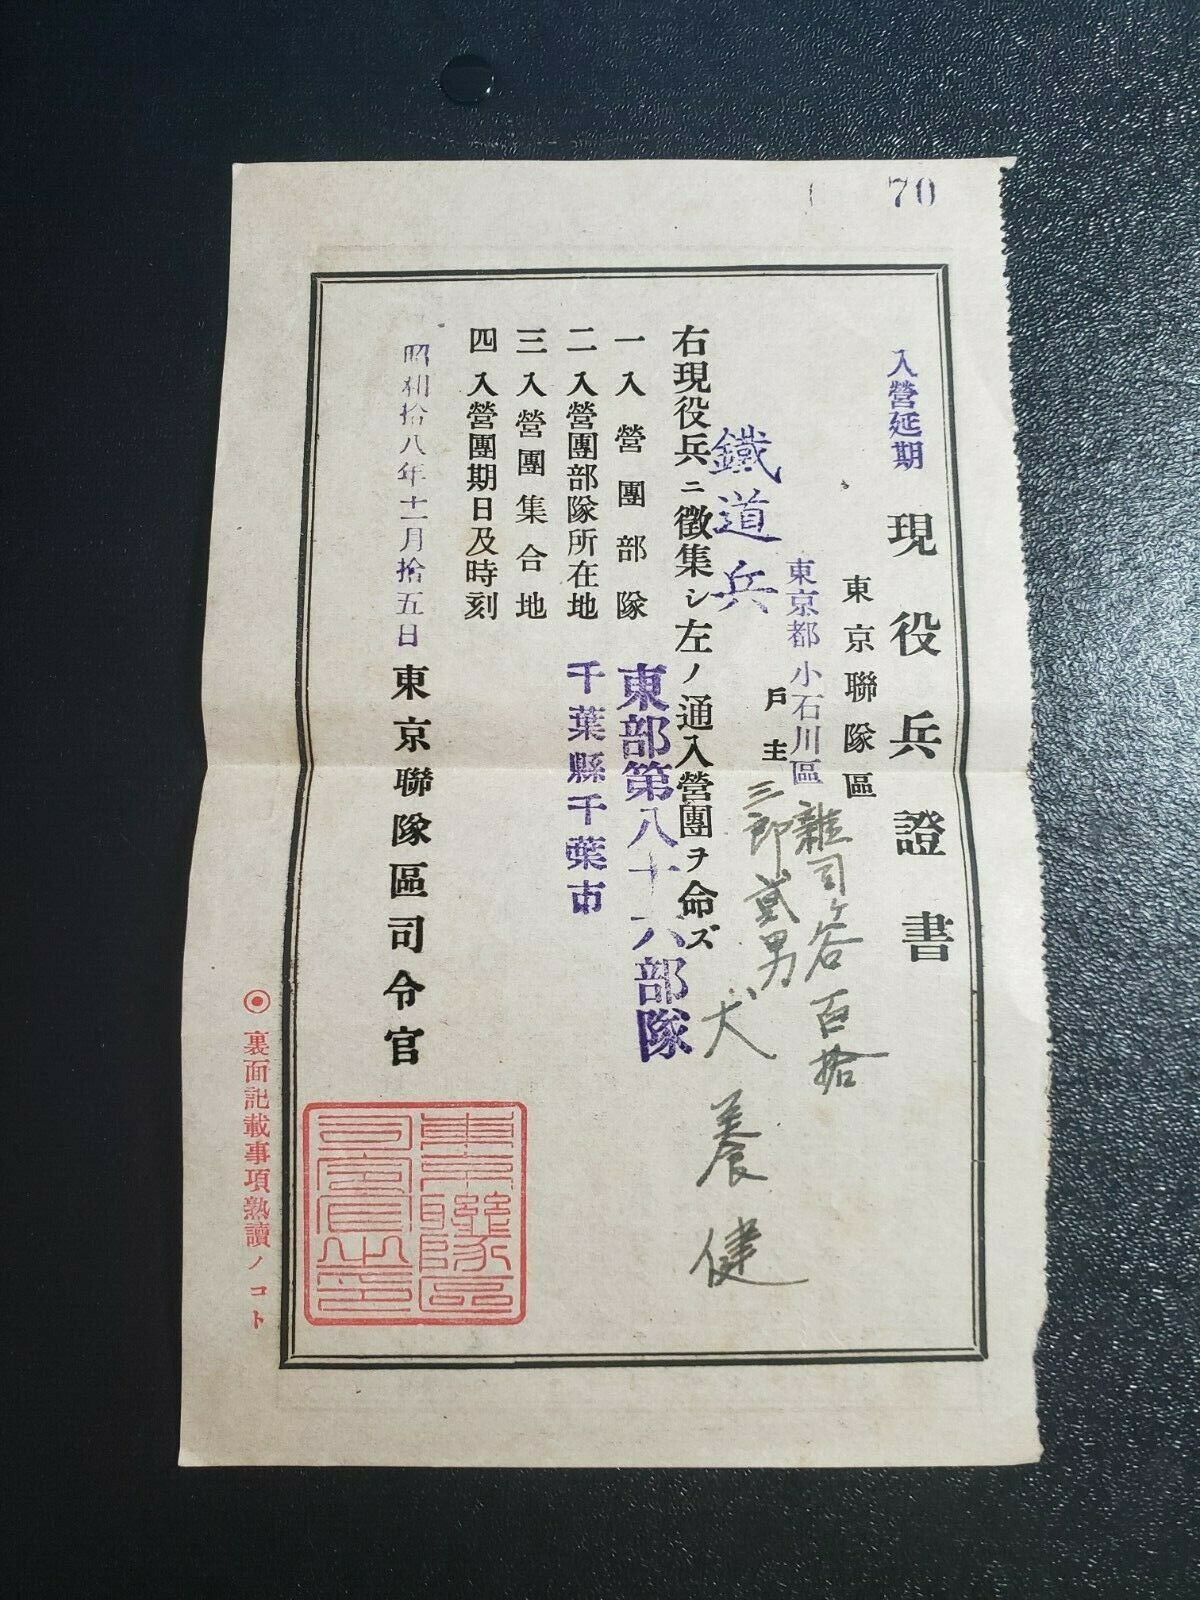 70
入營延期
現役兵證書
東京聯隊區
東京都小石川區雜司ヶ谷百拾
戶主三郎貳男
鐵道兵 犬養健
右現役兵ニ徵集シ左ノ通入營團ヲ命ズ
一入營團部隊 東部第八十六部隊
二入營團部隊所在地 千葉縣千葉市
三入營團集合地
四入營團期日及時刻
昭和拾八年十二月拾五日 東京聯隊區司令官
東京聯隊區司令官之印
◉裏面記載事項熟讀ノコト